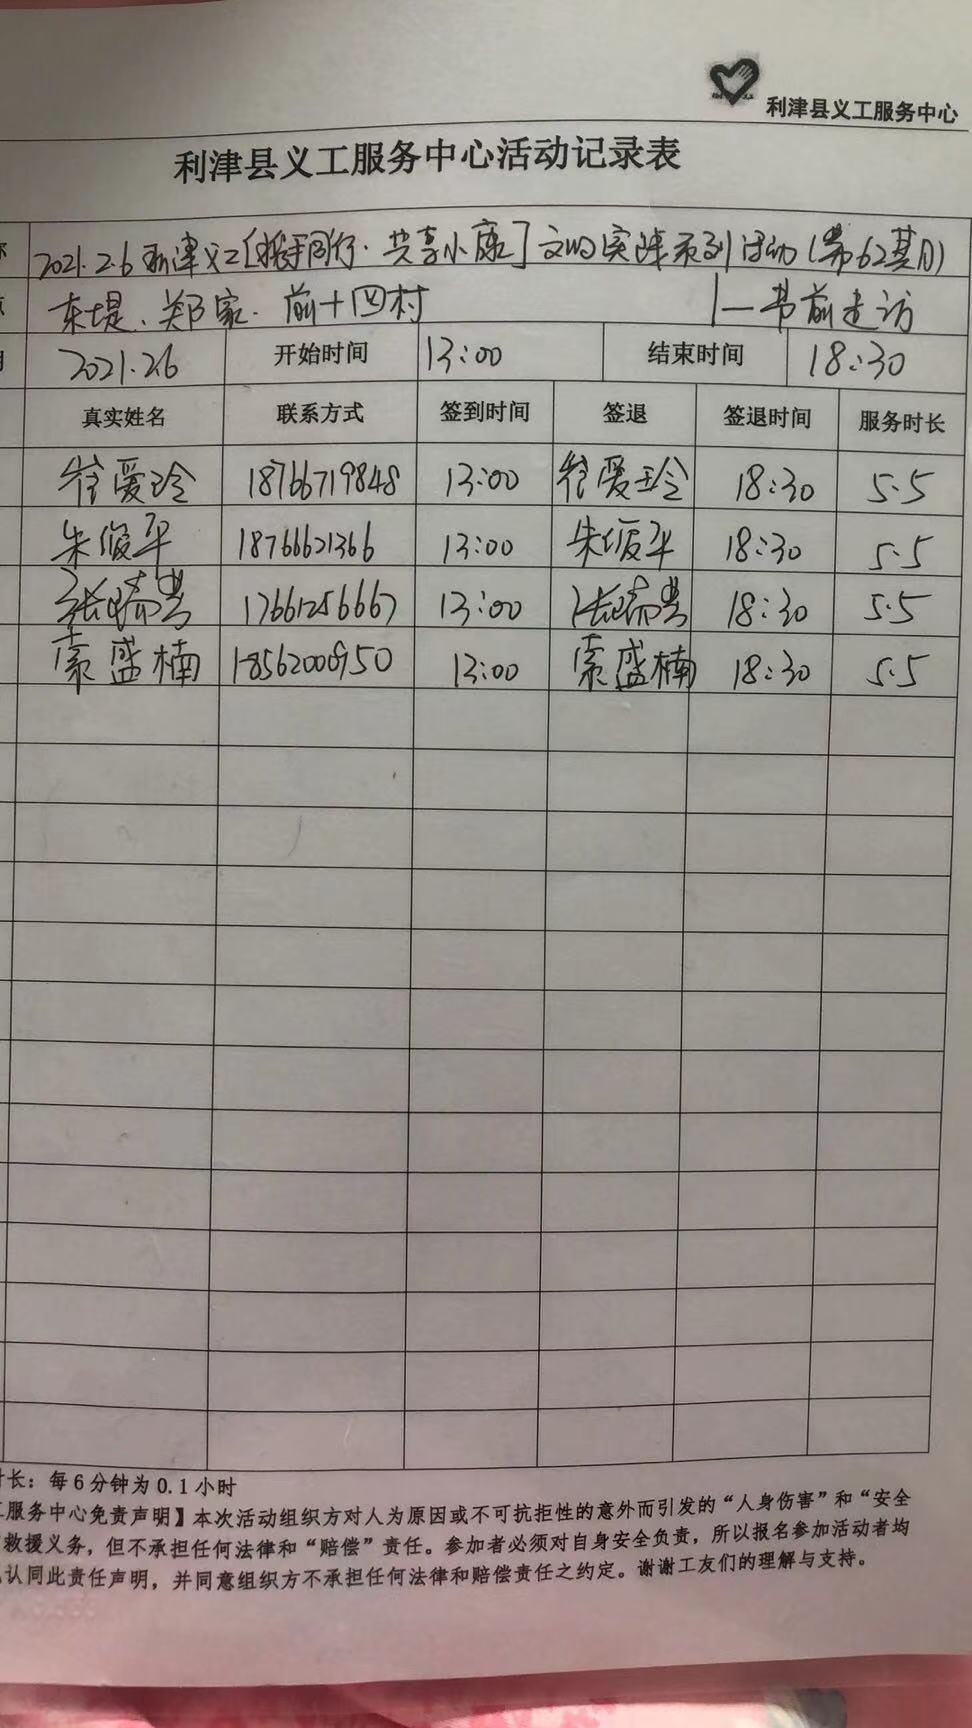 利津县义工服务中心
利津县义工服务中心活动记录表
2021.2.6 利津义工[携手同行·共享小康]文明实践系列活动(第62期)
东堤、郑家、前十四村 |—节前走访
2021.2.6 开始时间 13:00 结束时间 18:30
真实姓名 联系方式 签到时间 签退 签退时间 服务时长
崔爱玲 18766719848 13:00 崔爱玲 18:30 5.5
朱俊平 18766621366 13:00 朱俊平 18:30 5.5
张瑞 17661256667 13:00 张瑞 18:30 5.5
索盛楠 18562000950 13:00 索盛楠 18:30 5.5
时长：每6分钟为0.1小时
工服务中心免责声明】本次活动组织方对人为原因或不可抗拒性的意外而引发的“人身伤害”和“安全
救援义务，但不承担任何法律和“赔偿”责任。参加者必须对自身安全负责，所以报名参加活动者均
认同此责任声明，并同意组织方不承担任何法律和赔偿责任之约定。谢谢工友们的理解与支持。